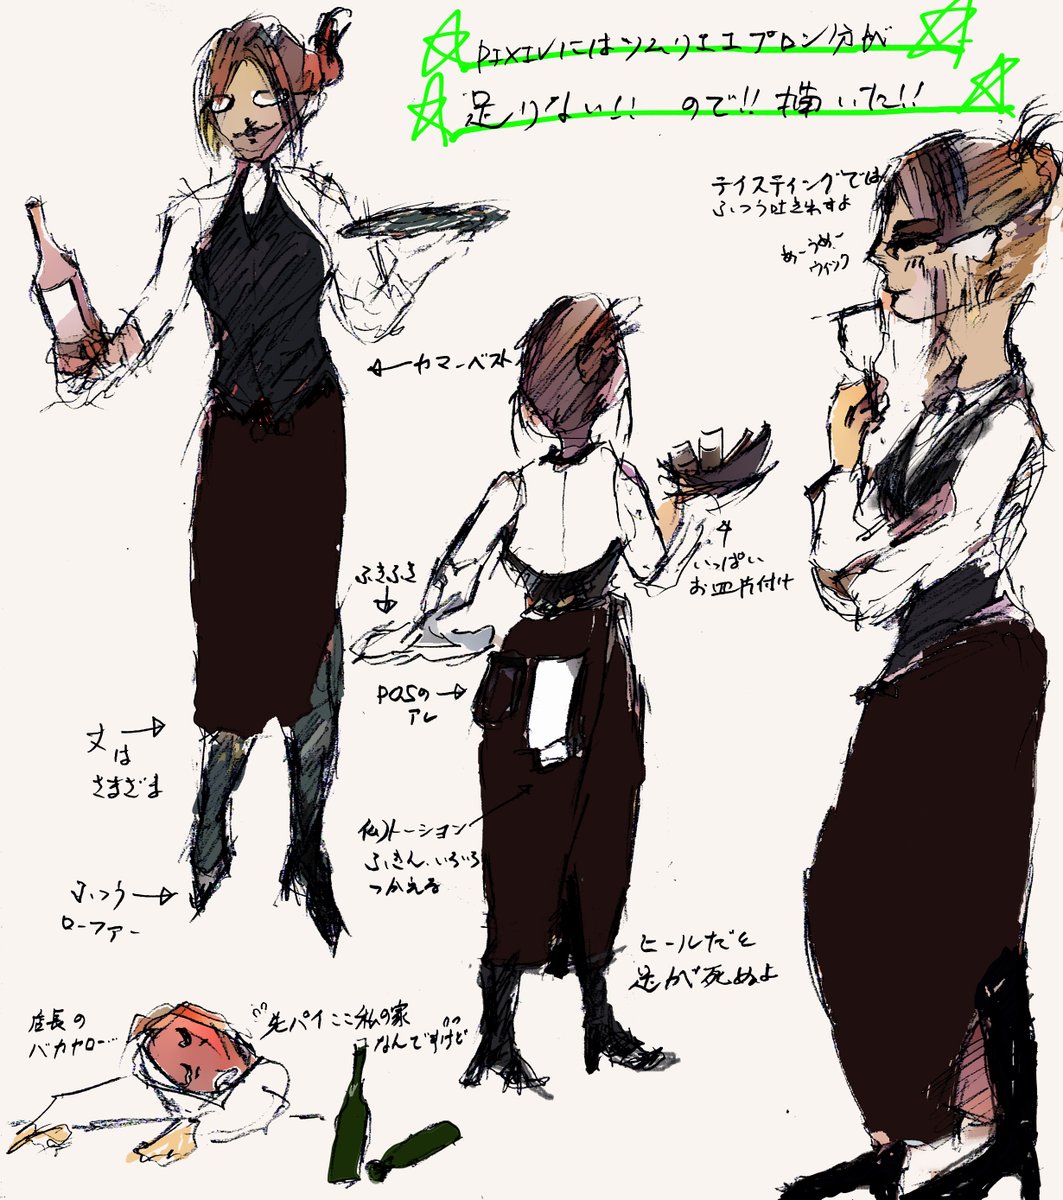 PIXIVにはソムリエエプロン分が
足りない!! ので!! 描いた!!
テイスティングでは
ふつう吐き出すよ
めーうめー
ウィンク
←カマーベスト
ふきふき
いっぱい
お皿片付け
POSの
アレ
丈は
さまざま
トーション
ふきん、いろいろ
つかえる
ふつう
ローファー
ヒールだと
足が死ぬよ
店長の
バカヤロー…
先パイここ私の家
なんですけど